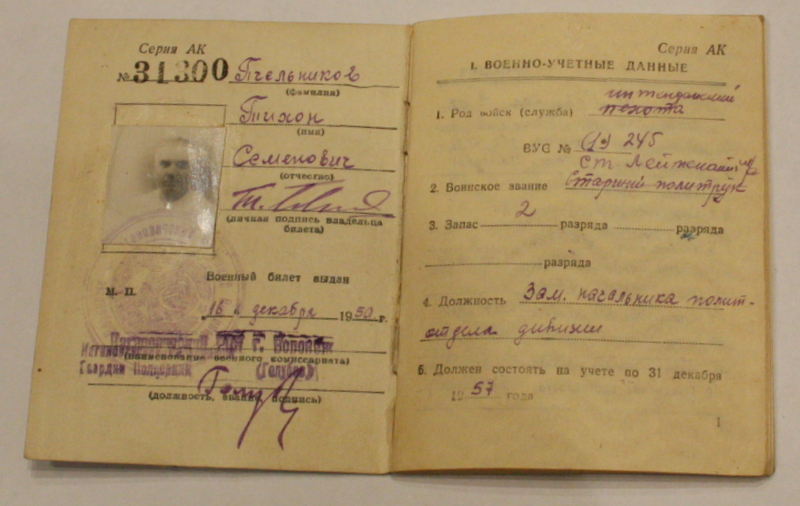 Серия АК
№31300 Пчельников
(фамилия)
Тихон
(имя)
Семенович
(отчество)
(личная подпись владельца
билета)
Военный билет выдан
М. П.
16 декабря 1950 г.
г. Воронеж
(наименование военного комиссариата)
Гвардии Полковник (Голубев)
(должность, звание, подпись)
Серия АК
I. ВОЕННО-УЧЕТНЫЕ ДАННЫЕ
интендантский
1. Род войск (служба) пехота
ВУС № 245
ст. Лейтенант
2. Воинское звание Старший политрук
3. Запас 2 разряда разряда
разряда
4. Должность Зам. начальника полит-
отдела дивизии
5. Должен состоять на учете по 31 декабря
1957 года
1